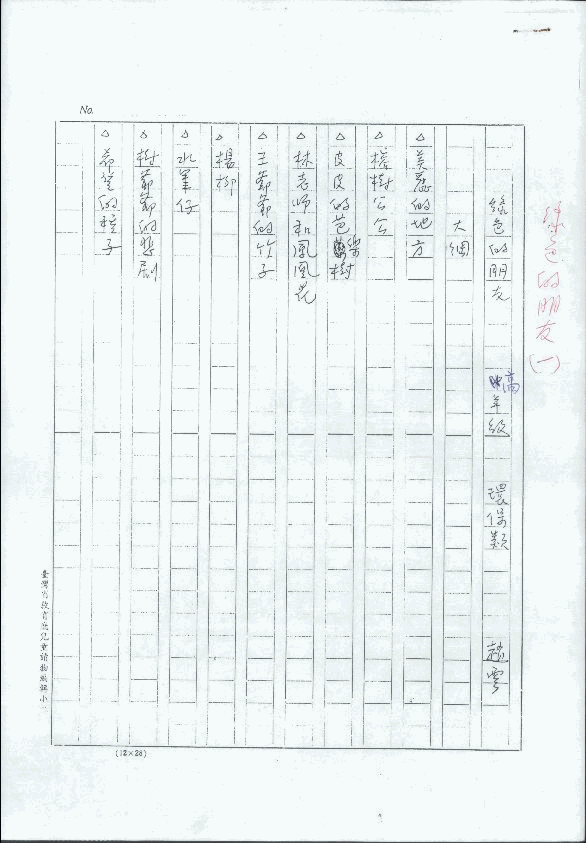 綠色的朋友(一)
No.
綠色的朋友 高年級 環保類 趙雲
大綱
△美麗的地方
△榕樹公公
△皮皮的芭樂樹
△林老師和鳳凰花
△王爺爺的竹子
△楊柳
△水筆仔
△樹爺爺的悲劇
△希望的種子
臺灣省教育廳兒童讀物編輯小
(12×28)